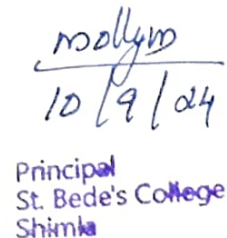 10/9/24
Principal
St. Bede's College
Shimla